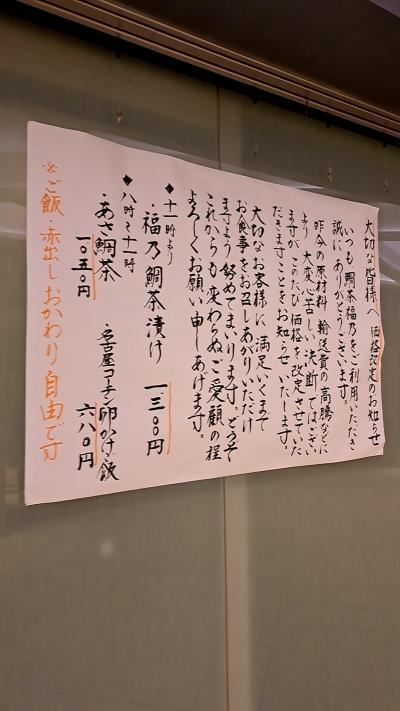 大切な皆様へ 価格改定のお知らせ
いつも 鯛茶福乃をご利用いただき
誠に ありがとうございます。
昨今の原材料 輸送費の高騰などに
より 大変心苦しい決断ではござい
ますが このたび価格を改定させていた
だきますことをお知らせいたします。
大切なお客様に 満足いくまで
お食事をお召しあがりいただけ
ますよう 努めてまいります。どうぞ
これからも変わらぬご愛顧の程
よろしくお願い申しあげます。
◆十一時より
・福乃鯛茶漬け 一三〇〇円
◆八時〜十一時
・あさ鯛茶 ・名古屋コーチン卵かけご飯
一〇五〇円 六八〇円
※ご飯・赤出しおかわり自由です